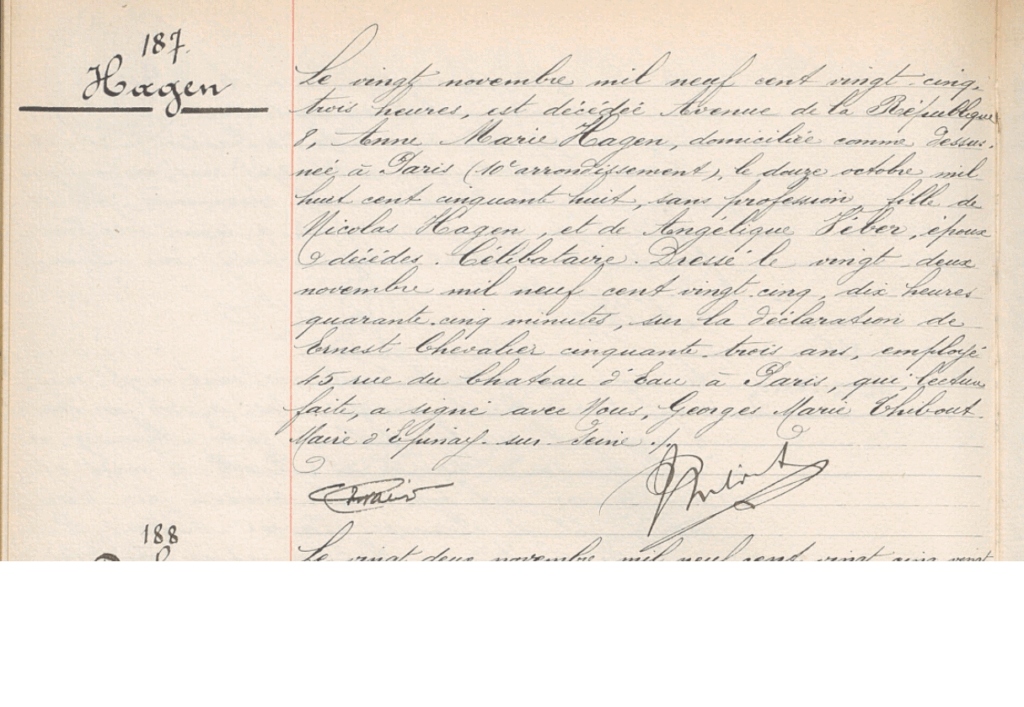 187.
Hagen
Le vingt novembre mil neuf cent vingt-cinq,
trois heures, est décédée Avenue de la République
8, Anne Marie Hagen, domiciliée comme dessus.
née à Paris (10e arrondissement), le douze octobre mil
huit cent cinquant huit, sans profession, fille de
Nicolas Hagen, et de Angélique Véber, époux
décédés. Célibataire. Dressé le vingt-deux
novembre mil neuf cent vingt-cinq, dix heures
quarante-cinq minutes, sur la déclaration de
Ernest Chevalier cinquante-trois ans, employé
45 rue du Chateau d'Eau à Paris, qui, lecture
faite, a signé avec Nous, Georges Marie Thibout
Maire d'Epinay-sur-Seine ./.
188
Le vingt deux novembre mil neuf cent vingt cinq vingt